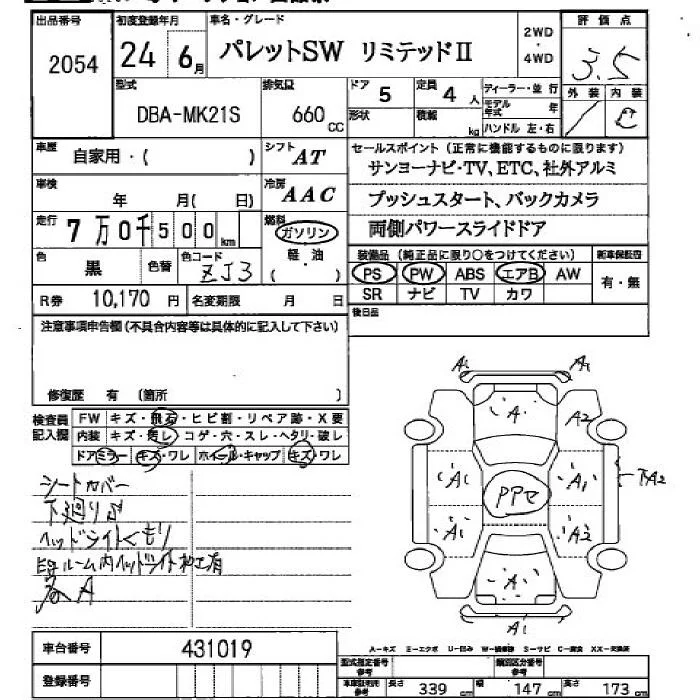 出品番号 初度登録年月 車名・グレード 評価点
2054 24 6月 パレットSW リミテッドⅡ 2WD・4WD 3.5
型式 排気量 ドア 定員 ディーラー・並行 外装 内装
DBA-MK21S 660cc 5 4人 モデル年式 年 C
形状 積載 kg ハンドル 左・右
車歴 自家用・( ) シフト AT
セールスポイント(正常に機能するものに限ります)
サンヨーナビ・TV、ETC、社外アルミ
車検 年 月( 日) 冷房 AAC
プッシュスタート、バックカメラ
走行 7万0千500km 燃料 ガソリン
両側パワースライドドア
軽・油
( )
色 黒 色替 色コード ZJ3
装備品(純正品に限り○をつけてください) 新車保証書
PS PW ABS エアB AW 有・無
SR ナビ TV カワ
R券 10,170円 名変期限 月 日
後日品
注意事項申告欄(不具合内容等は具体的に記入して下さい)
修復歴 有 (箇所 )
検査員記入欄
FW キズ・飛石・ヒビ割・リペア跡・X要
内装 キズ・汚レ・コゲ・穴・スレ・ヘタリ・破レ
ドアミラー キズ・ワレ ホイール・キャップ キズ・ワレ
シートカバー
下廻りサ
ヘッドライトくもり
ルーム内ヘッドライト加工有
A
A1 A1
A A2
A1 A1 A2
PPセ
A1 A2
A
A1
車台番号 431019
A-キズ E-エクボ U-凹み W-補修跡 S-サビ C-腐食 XX-交換済
登録番号
型式指定番号参考 類別区分番号参考
車車証明用参考 長さ 339cm 幅 147cm 高さ 173cm